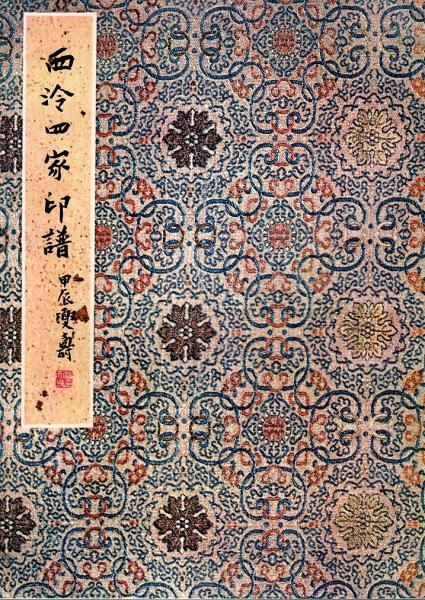 西泠四家印譜
甲辰燮壽